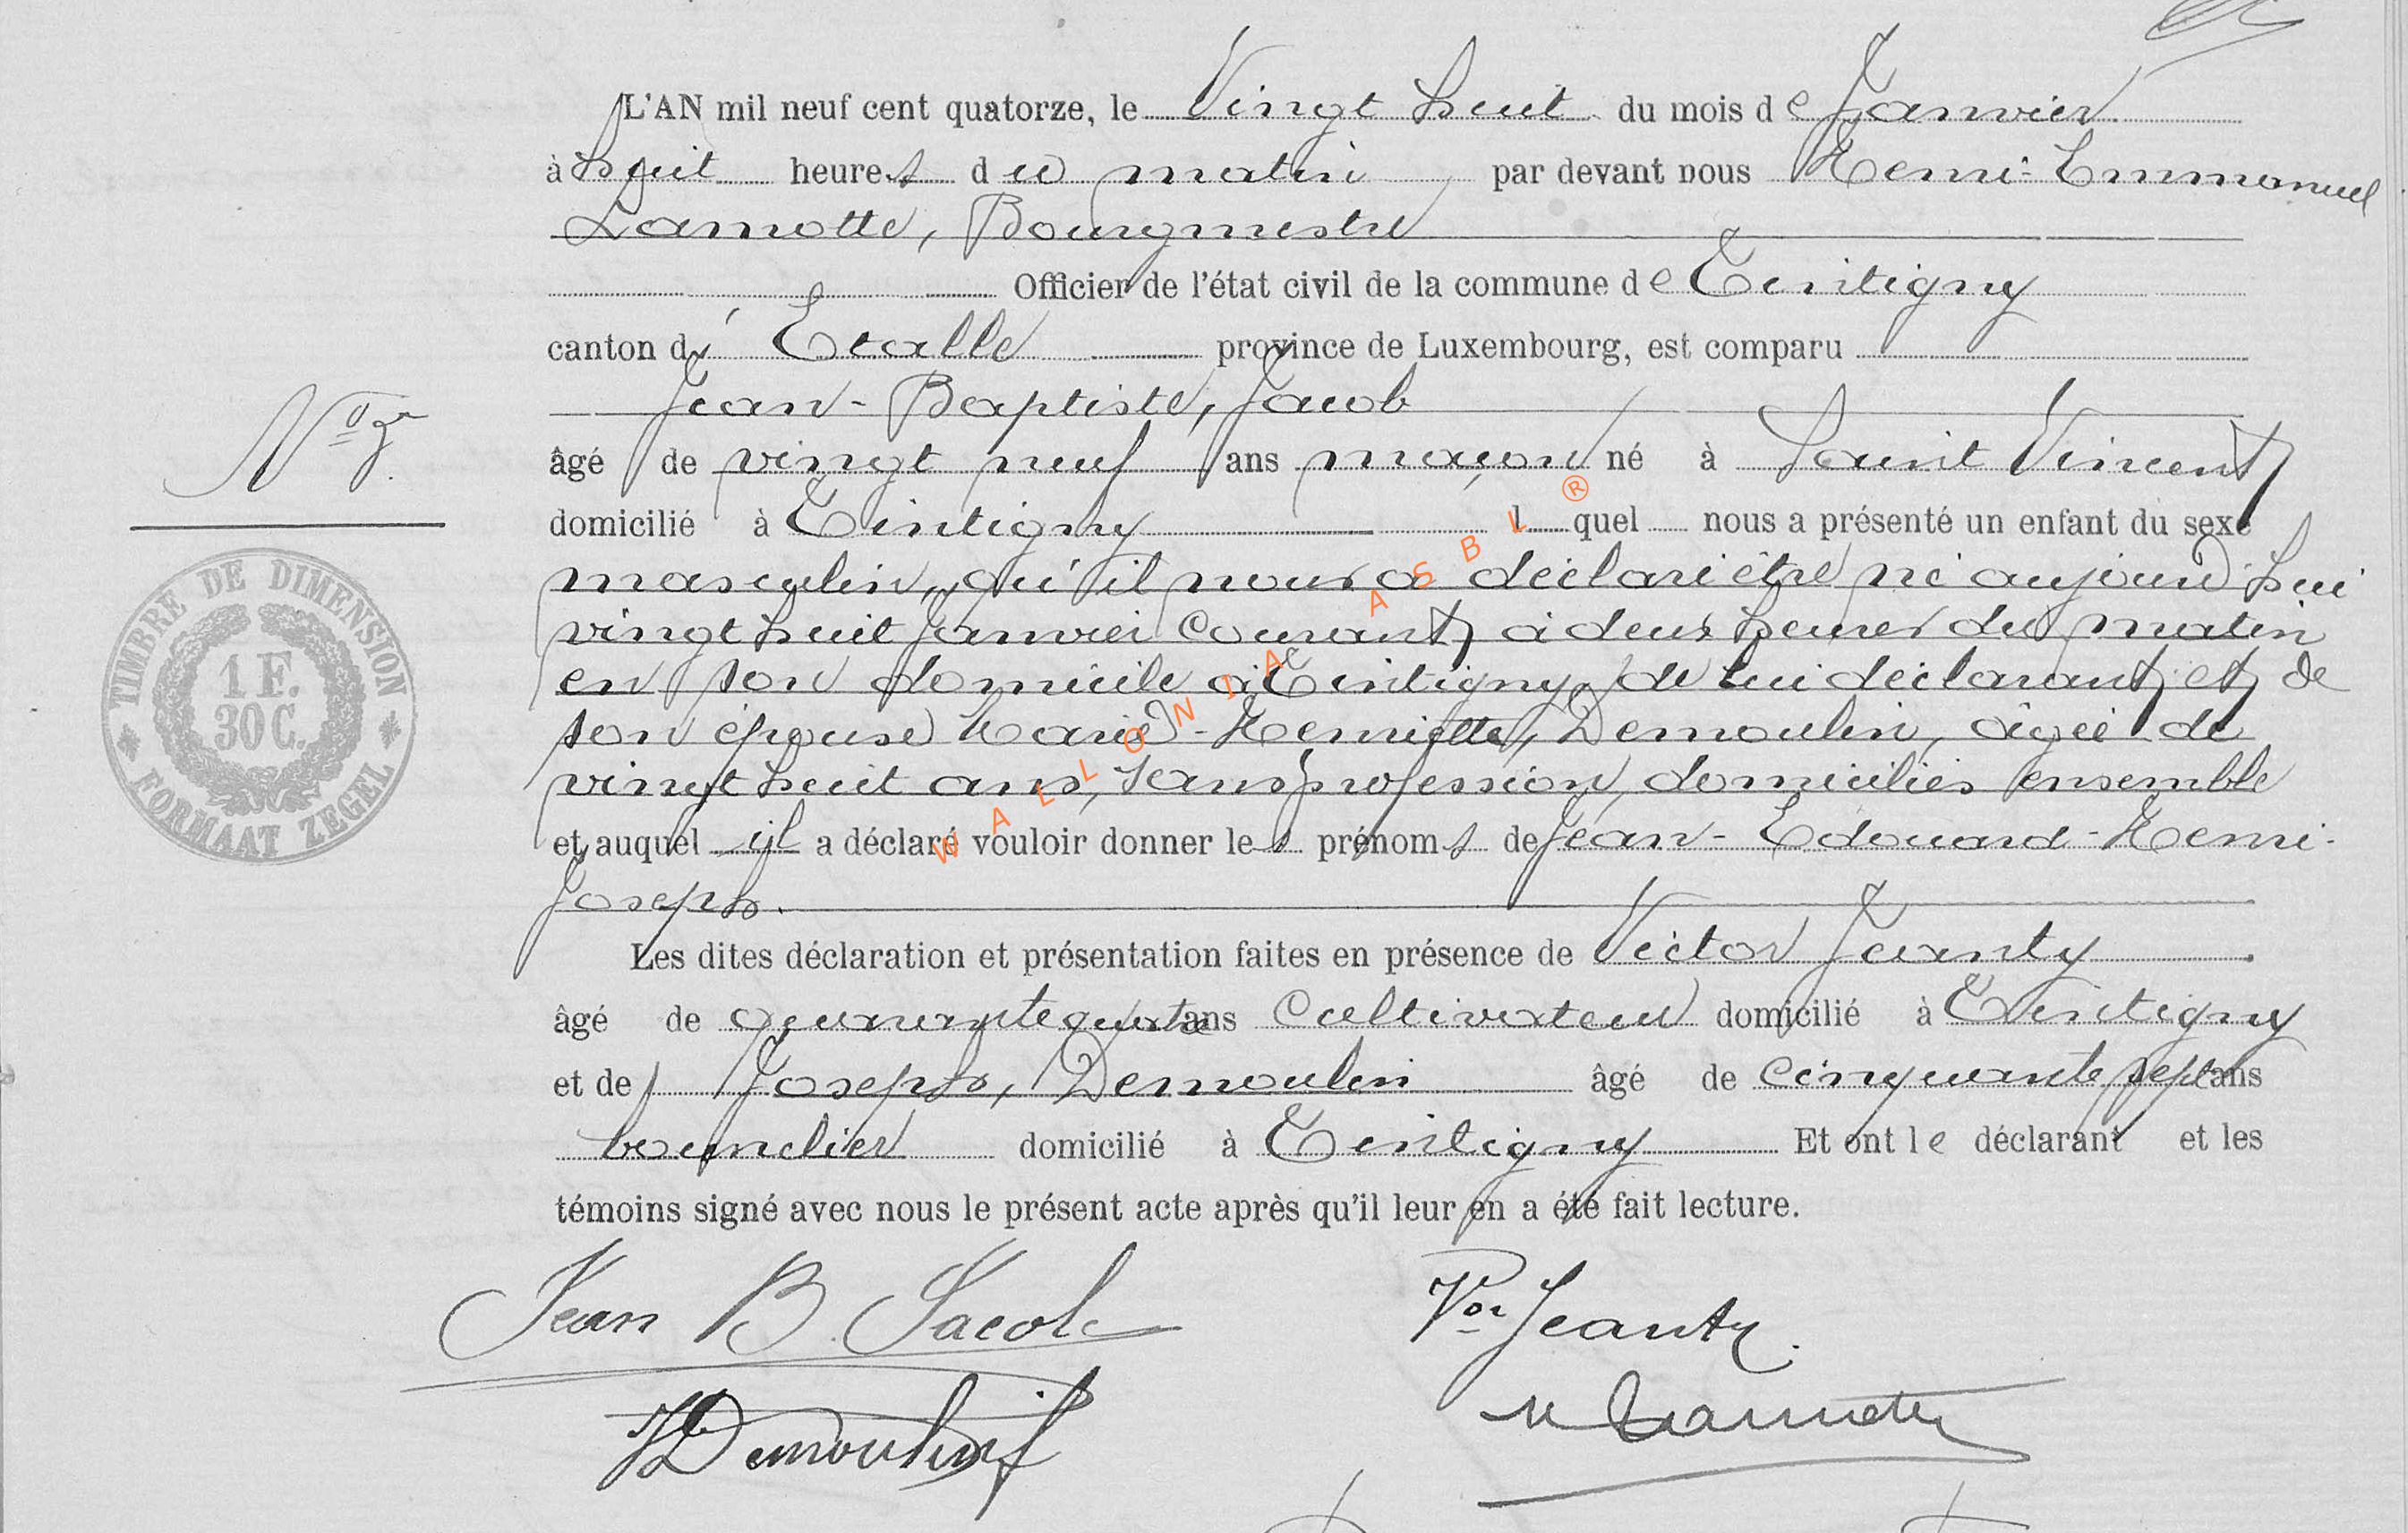 L'AN mil neuf cent quatorze, le Vingt huit du mois de Janvier
à huit heures du matin par devant nous Henri-Emmanuel
Lamotte, Bourgmestre
Officier de l'état civil de la commune de Tintigny
canton d' Etalle province de Luxembourg, est comparu
Jean-Baptiste, Jacob
N° 3.
âgé de vingt neuf ans maçon né à Saint Vincent
domicilié à Tintigny l quel nous a présenté un enfant du sexe
masculin, qu'il nous a déclaré être né aujourd'hui
vingt huit Janvier courant, à deux heures du matin
en son domicile à Tintigny, de lui déclarant, et de
son épouse Marie-Henriette, Demoulin, âgée de
vingt huit ans, sans profession, domiciliés ensemble
et auquel il a déclaré vouloir donner les prénoms de Jean-Edouard-Henri-
Joseph.
Les dites déclaration et présentation faites en présence de Victor Jeanty
âgé de quarante quatre ans Cultivateur domicilié à Tintigny
et de Joseph, Demoulin âgé de cinquante sept ans
domicilié à Tintigny Et ont le déclarant et les
témoins signé avec nous le présent acte après qu'il leur en a été fait lecture.
Jean B. Jacob
Vor Jeanty.
J Demoulin
H Lamotte
TIMBRE DE DIMENSION
1 F.
30 C.
FORMAAT ZEGEL
WALLONIA ASBL ®